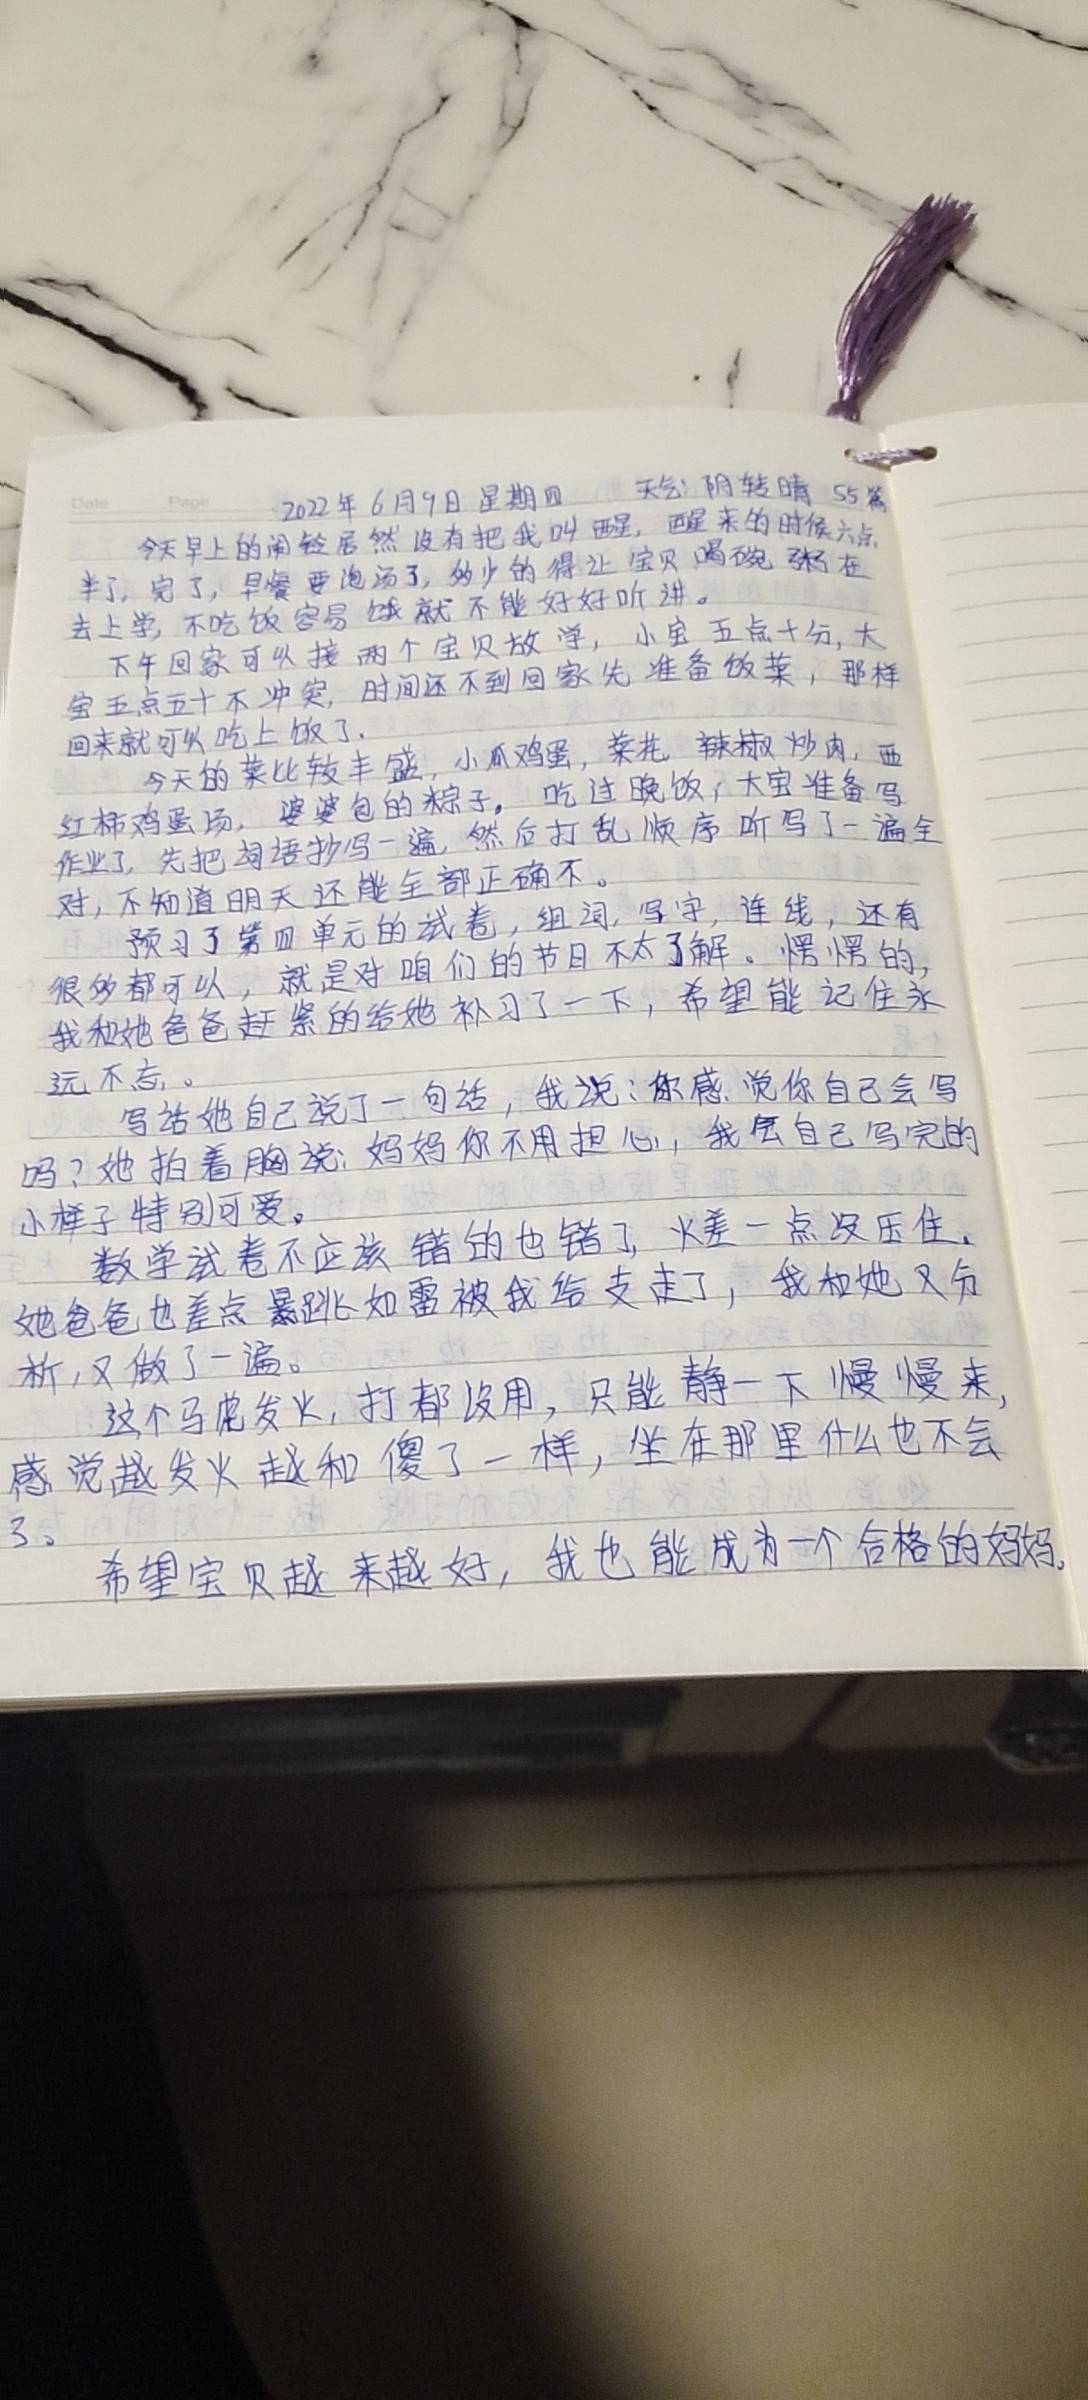 Date Page
2022年6月9日 星期四 天气:阴转晴 55篇
今天早上的闹铃居然没有把我叫醒,醒来的时候六点
半了,完了,早餐要泡汤了,多少的得让宝贝喝碗粥在
去上学,不吃饭容易饿就不能好好听讲。
下午回家可以接两个宝贝放学,小宝五点十分,大
宝五点五十不冲突,时间还不到回家先准备饭菜,那样
回来就可以吃上饭了.
今天的菜比较丰盛,小瓜鸡蛋,菜花,辣椒炒肉,西
红柿鸡蛋汤,婆婆包的粽子。吃过晚饭,大宝准备写
作业了,先把词语抄写一遍,然后打乱顺序听写了一遍全
对,不知道明天还能全部正确不。
预习了第四单元的试卷,组词,写字,连线,还有
很多都可以,就是对咱们的节日不太了解。愣愣的,
我和她爸爸赶紧的给她补习了一下,希望能记住永
远不忘。
写话她自己说了一句话,我说:你感觉你自己会写
吗?她拍着胸说:妈妈你不用担心,我会自己写完的
小样子特别可爱。
数学试卷不应该错的也错了,火差一点没压住.
她爸爸也差点暴跳如雷被我给支走了,我和她又分
析,又做了一遍。
这个马虎发火,打都没用,只能静一下慢慢来,
感觉越发火越和傻了一样,坐在那里什么也不会
了。
希望宝贝越来越好,我也能成为一个合格的妈妈。